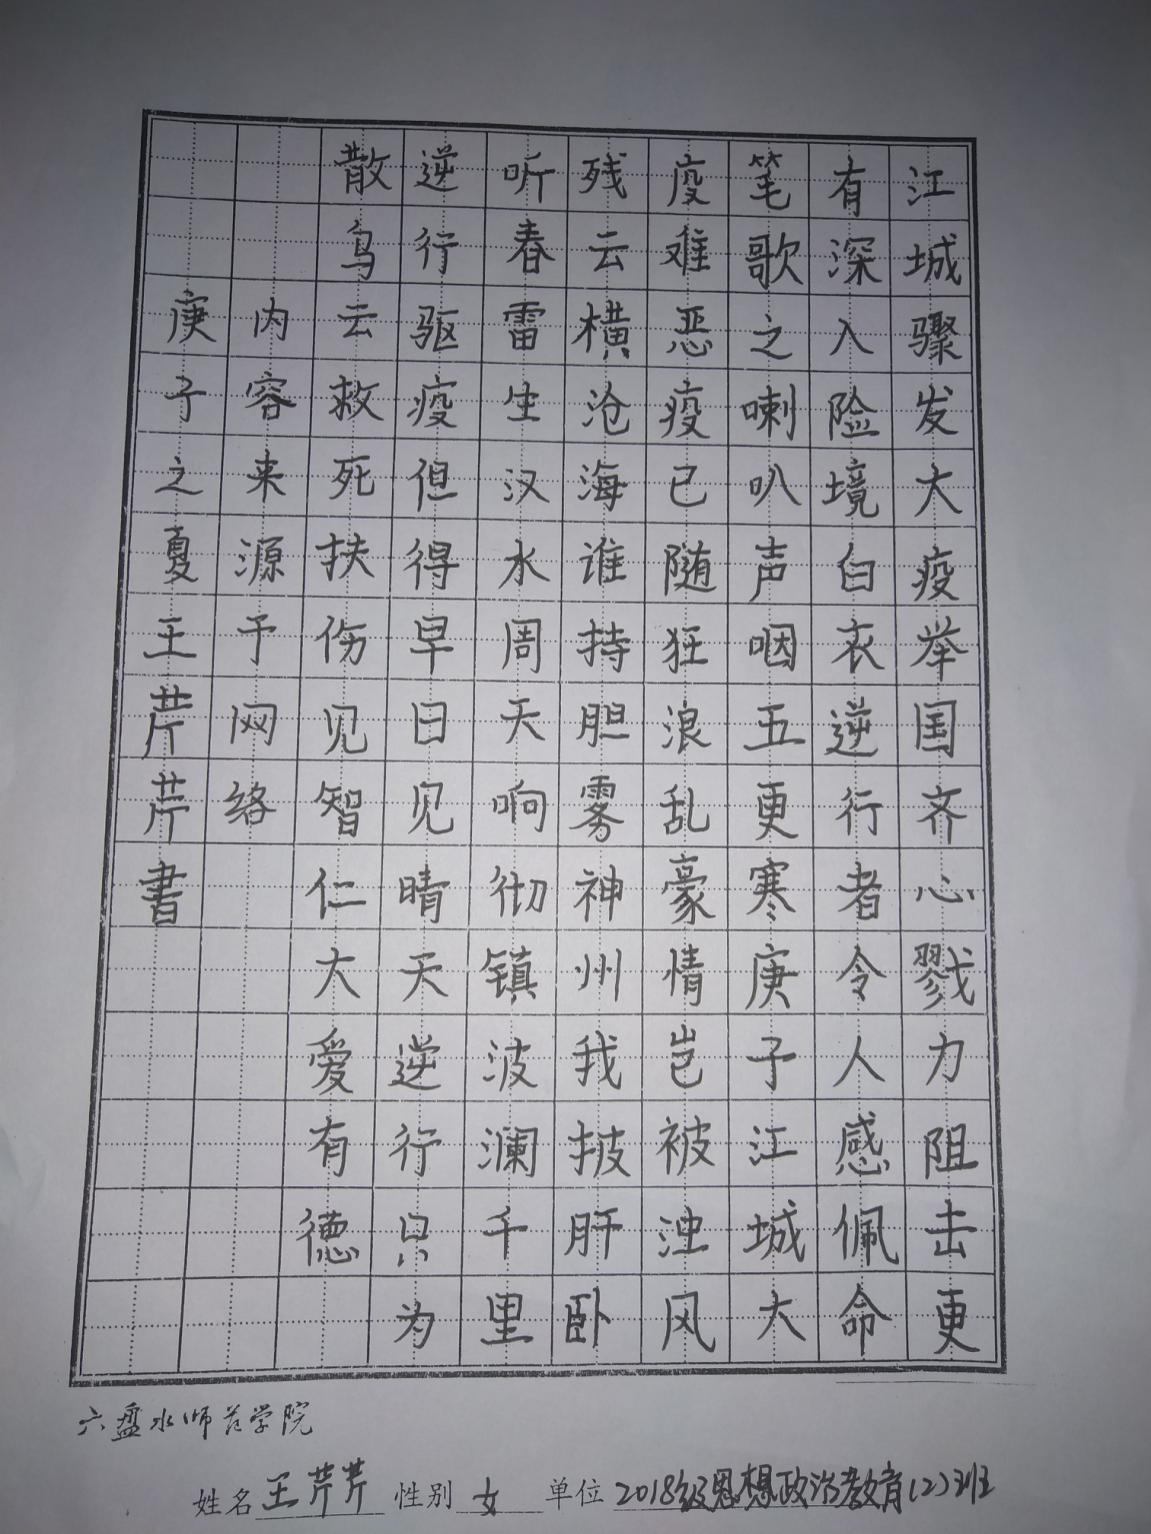 江城骤发大疫举国齐心戮力阻击更
有深入险境白衣逆行者令人感佩命
笔歌之喇叭声咽五更寒庚子江城大
疫难恶疫已随狂浪乱豪情岂被浊风
残云横沧海谁持胆雾神州我披肝卧
听春雷生汉水周天响彻镇波澜千里
逆行驱疫但得早日见晴天逆行只为
散鸟云救死扶伤见智仁大爱有德
内容来源于网络
庚子之夏王芹芹書
六盘水师范学院
姓名王芹芹 性别 女 单位 2018级思想政治教育(2)班